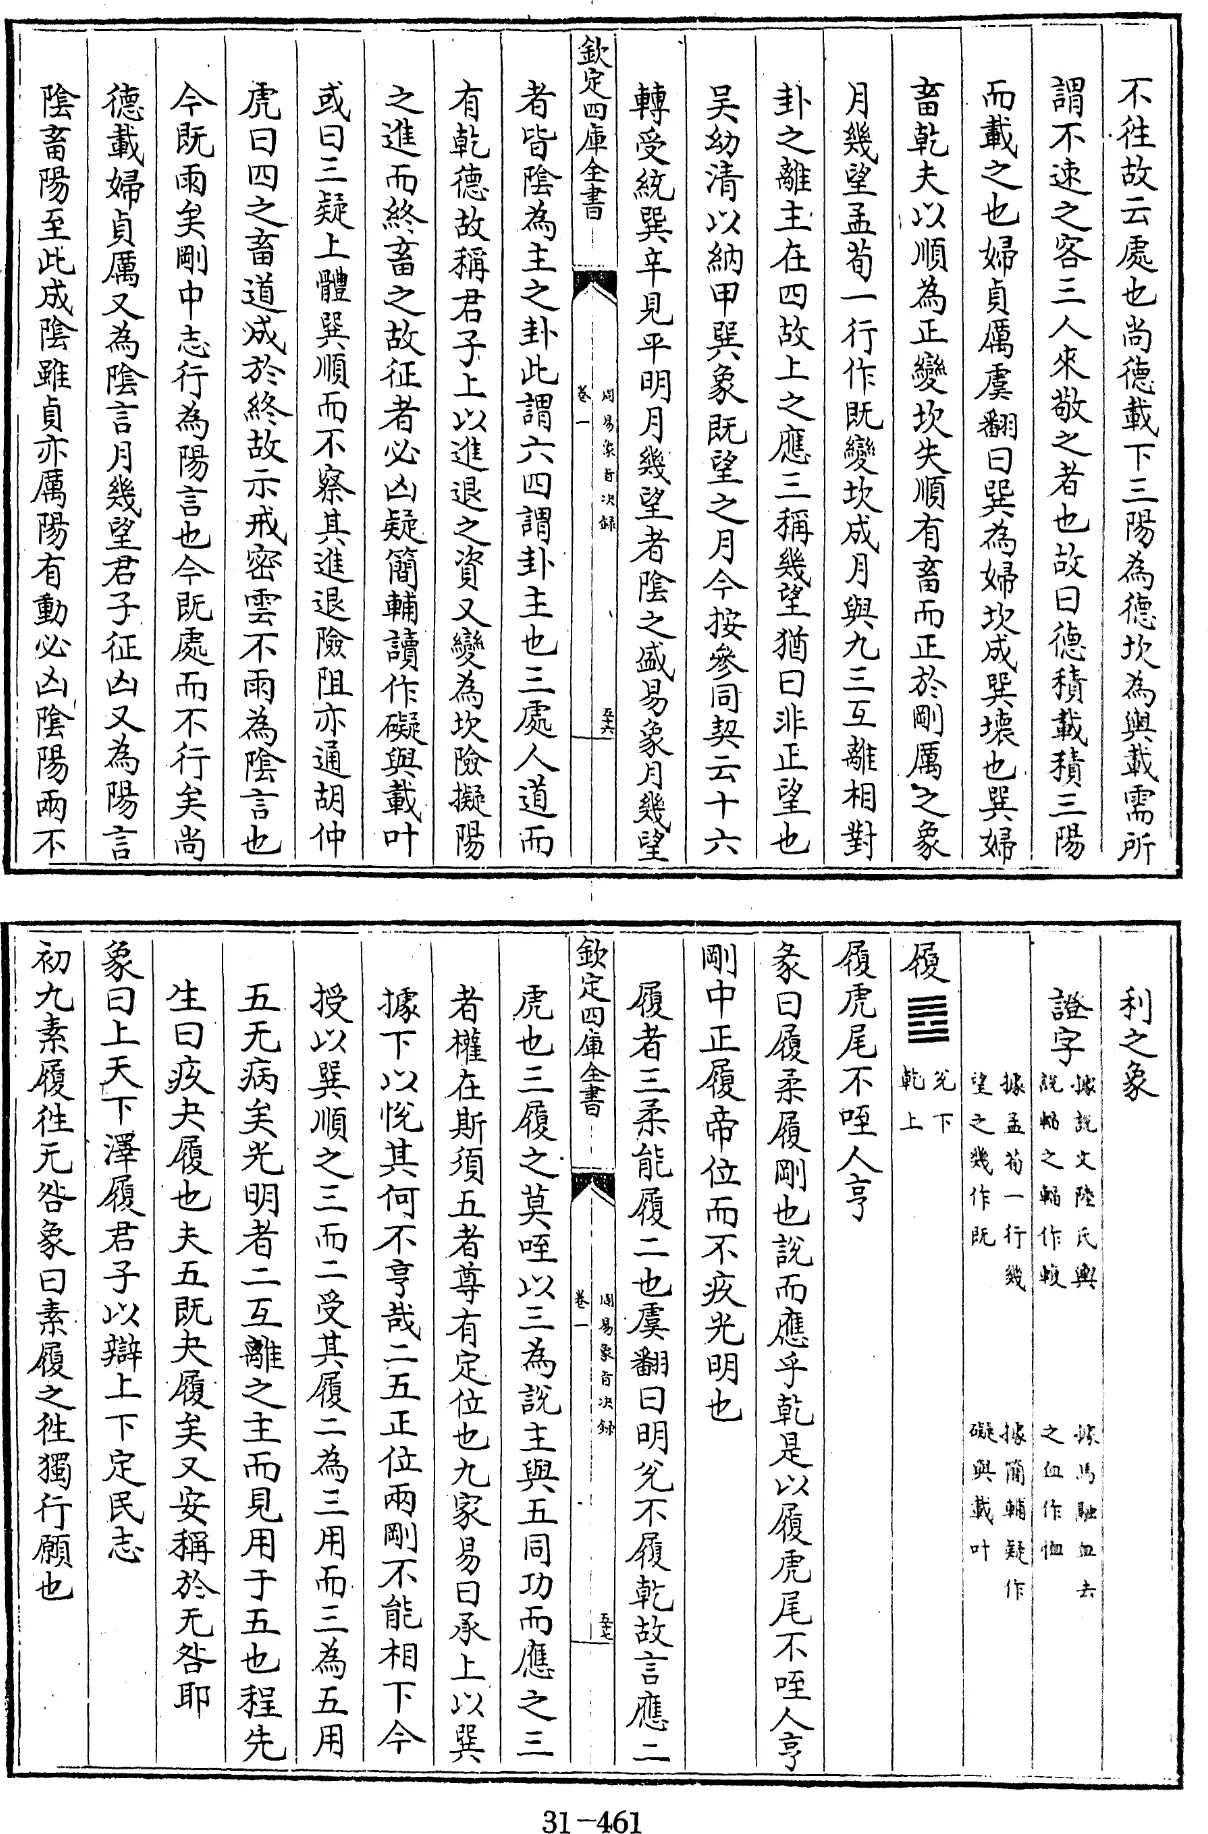 不往故云處也尚德載下三陽為德坎為輿載需所
謂不速之客三人來敬之者也故曰德積載積三陽
而載之也婦貞厲虞翻曰巽為婦坎成巽壊也巽婦
畜乾夫以順為正變坎失順有畜而正於剛厲之象
月幾望孟荀一行作既變坎成月與九三互離相對
卦之離主在四故上之應三稱幾望猶曰非正望也
吴幼清以納甲巽象既望之月今按參同契云十六
轉受統巽辛見平明月幾望者陰之盛易象月幾望
欽定四庫全書
周易象旨決録
卷一
五十六
者皆陰為主之卦此謂六四謂卦主也三處人道而
有乾德故稱君子上以進退之資又變為坎險擬陽
之進而終畜之故征者必凶疑簡輔讀作礙與載叶
或曰三疑上體巽順而不察其進退險阻亦通胡仲
虎曰四之畜道成於終故示戒密雲不雨為陰言也
今既雨矣剛中志行為陽言也今既處而不行矣尚
德載婦貞厲又為陰言月幾望君子征凶又為陽言
陰畜陽至此成陰雖貞亦厲陽有動必凶陰陽兩不
利之象
證字
據說文陸氏輿
說輻之輻作輹
據馬融血去
之血作恤
據孟荀一行幾
望之幾作既
據簡輔疑作
礙與載叶
履䷉
兊下
乾上
履虎尾不咥人亨
彖曰履柔履剛也說而應乎乾是以履虎尾不咥人亨
剛中正履帝位而不疚光明也
履者三柔能履二也虞翻曰明兊不履乾故言應二
欽定四庫全書
周易象旨決録
卷一
五十七
虎也三履之莫咥以三為說主與五同功而應之三
者權在斯須五者尊有定位也九家易曰承上以巽
據下以悅其何不亨哉二五正位兩剛不能相下今
授以巽順之三而二受其履二為三用而三為五用
五无病矣光明者二互離之主而見用于五也程先
生曰疚夬履也夫五既夬履矣又安稱於无咎耶
象曰上天下澤履君子以辯上下定民志
初九素履往无咎象曰素履之往獨行願也
31-461